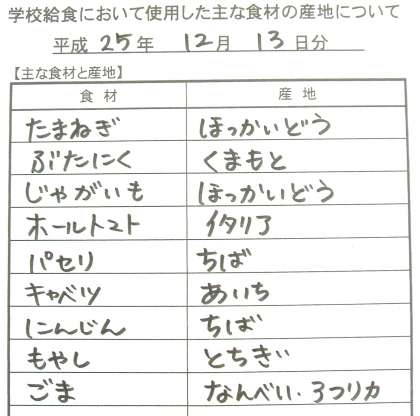 学校給食において使用した主な食材の産地について
平成 25 年 12 月 13 日分
【主な食材と産地】
食材 産地
たまねぎ ほっかいどう
ぶたにく くまもと
じゃがいも ほっかいどう
ホールトマト イタリア
パセリ ちば
キャベツ あいち
にんじん ちば
もやし とちぎ
ごま なんべい・アフリカ